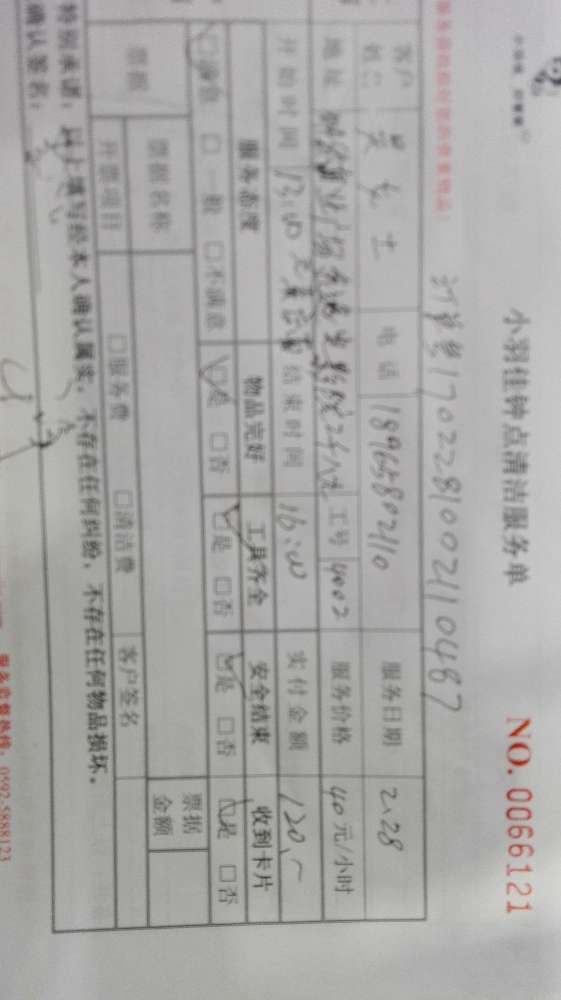 小羽佳钟点清洁服务单
NO. 0066121
订单号1702281002110487
客户姓名 吴女士 电话 18965802110 服务日期 2.28
地址 工号 4002 服务价格 40元/小时
开始时间 13:00 结束时间 16:00 实付金额 120
服务态度 物品完好 工具齐全 安全结束 收到卡片
□满意 □一般 □不满意 □是 □否 □是 □否 □是 □否 □是 □否
票据 票据名称 票据金额
开票项目 □服务费 □清洁费 客户签名
特别承诺：以上填写经本人确认属实，不存在任何纠纷，不存在任何物品损坏。
确认签名：
服务监督热线：0592-5888123